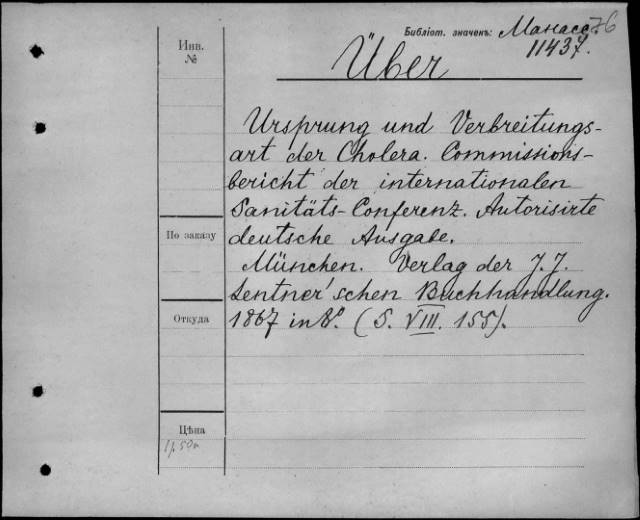 Библіот. значекъ: Манасс. 76
11437.
Über
Инв.
№
Ursprung und Verbreitungs-
art der Cholera. Commissions-
bericht der internationalen
Sanitäts-Conferenz. Autorisirte
deutsche Ausgabe.
По заказу
München. Verlag der J. J.
Lentner'schen Buchhandlung.
1867 in 8º. (S. VIII. 155).
Откуда
Цѣна
1 р. 50 к